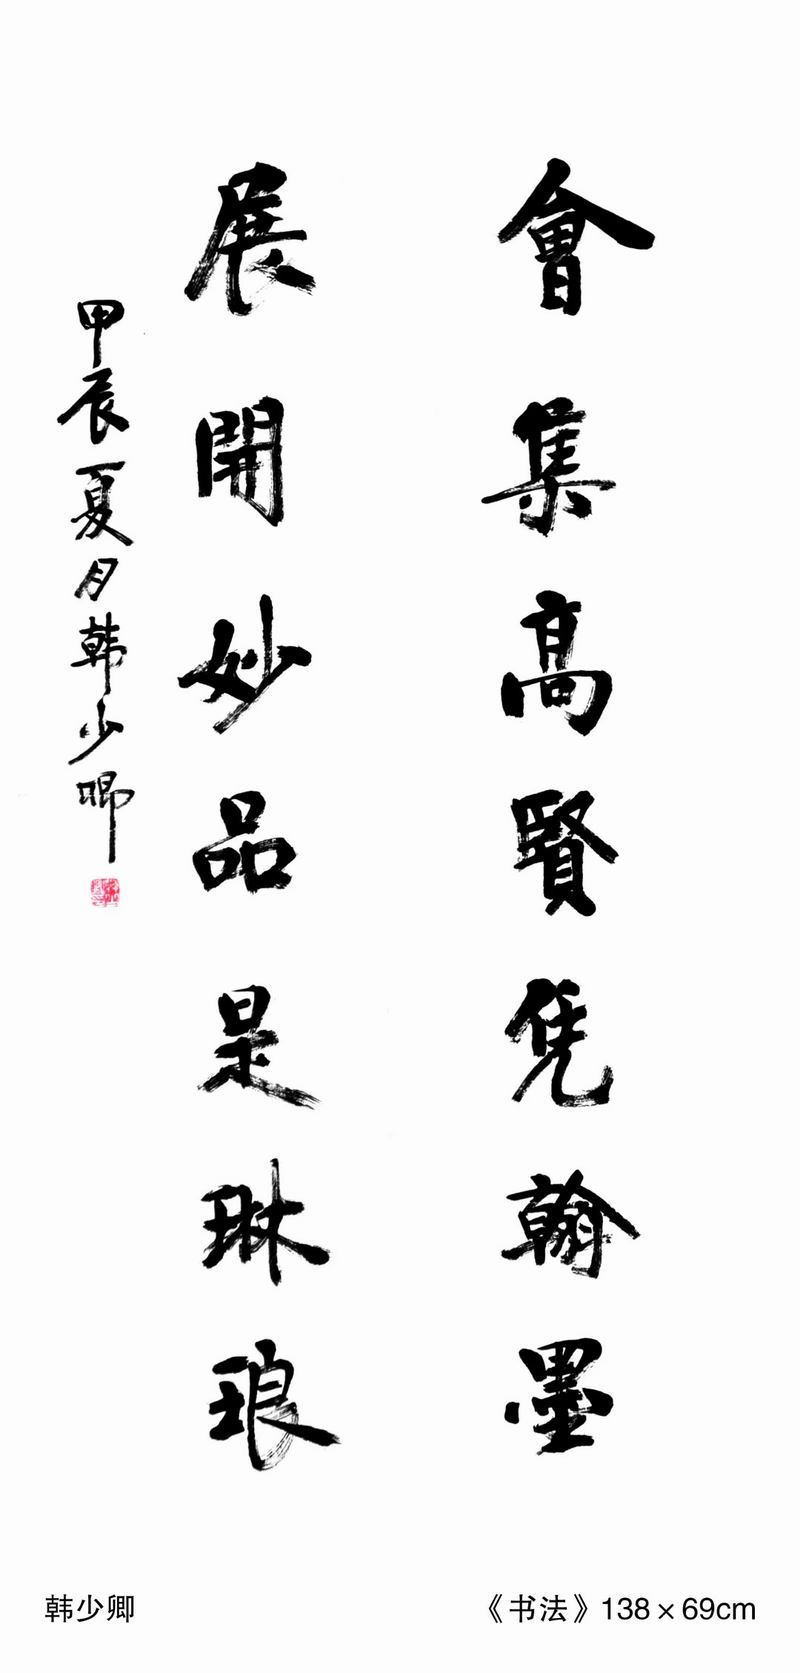 會集高賢凭翰墨
展開妙品是琳琅
甲辰夏月韩少卿
韩少卿
《书法》138×69cm